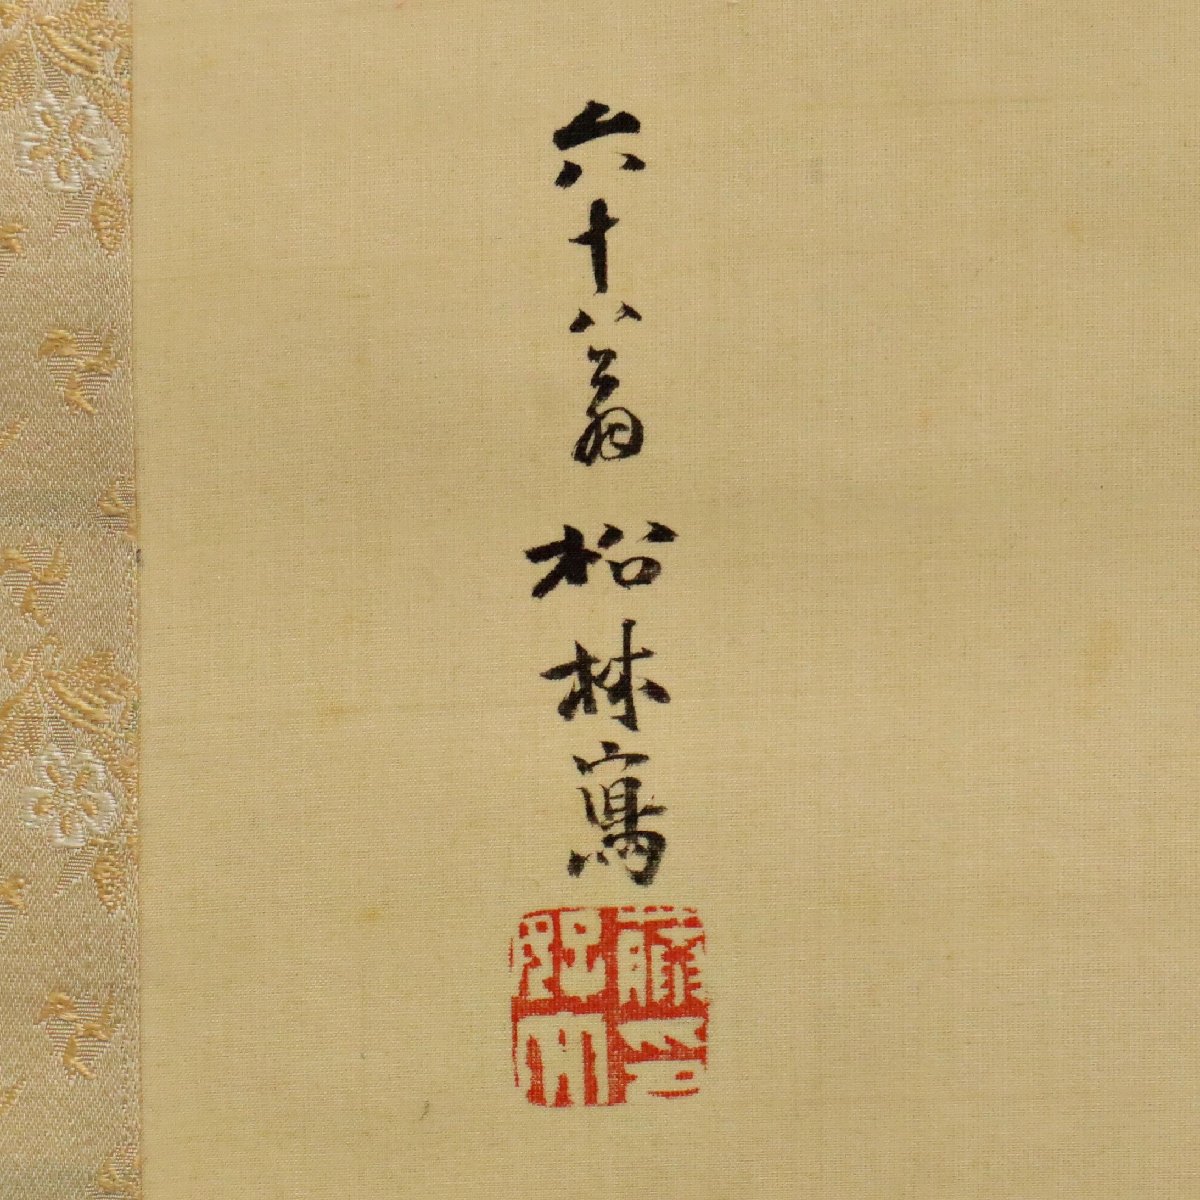 六十八翁 松林寫